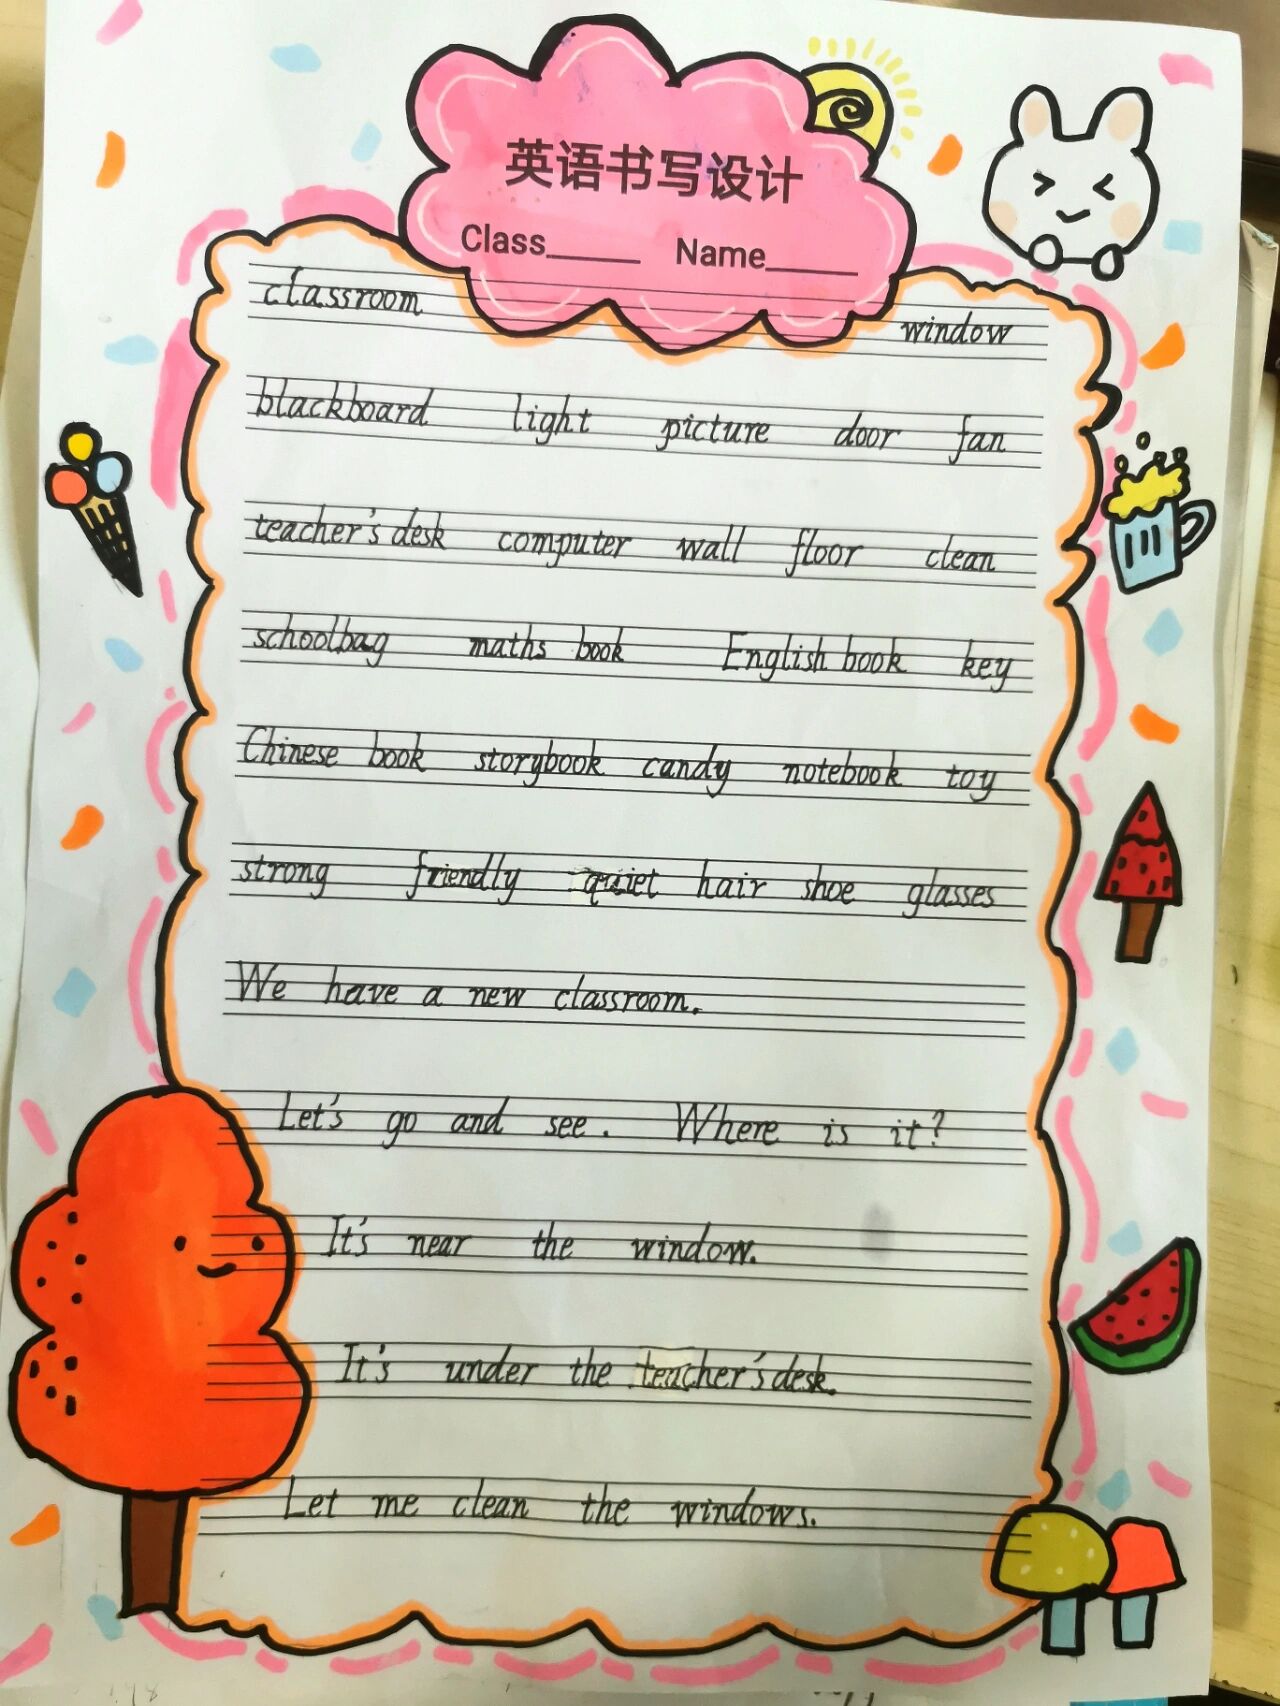 英语书写设计
Class______ Name______
classroom window
blackboard light picture door fan
teacher's desk computer wall floor clean
schoolbag maths book English book key
Chinese book storybook candy notebook toy
strong friendly quiet hair shoe glasses
We have a new classroom.
Let's go and see. Where is it?
It's near the window.
It's under the teacher's desk.
Let me clean the windows.